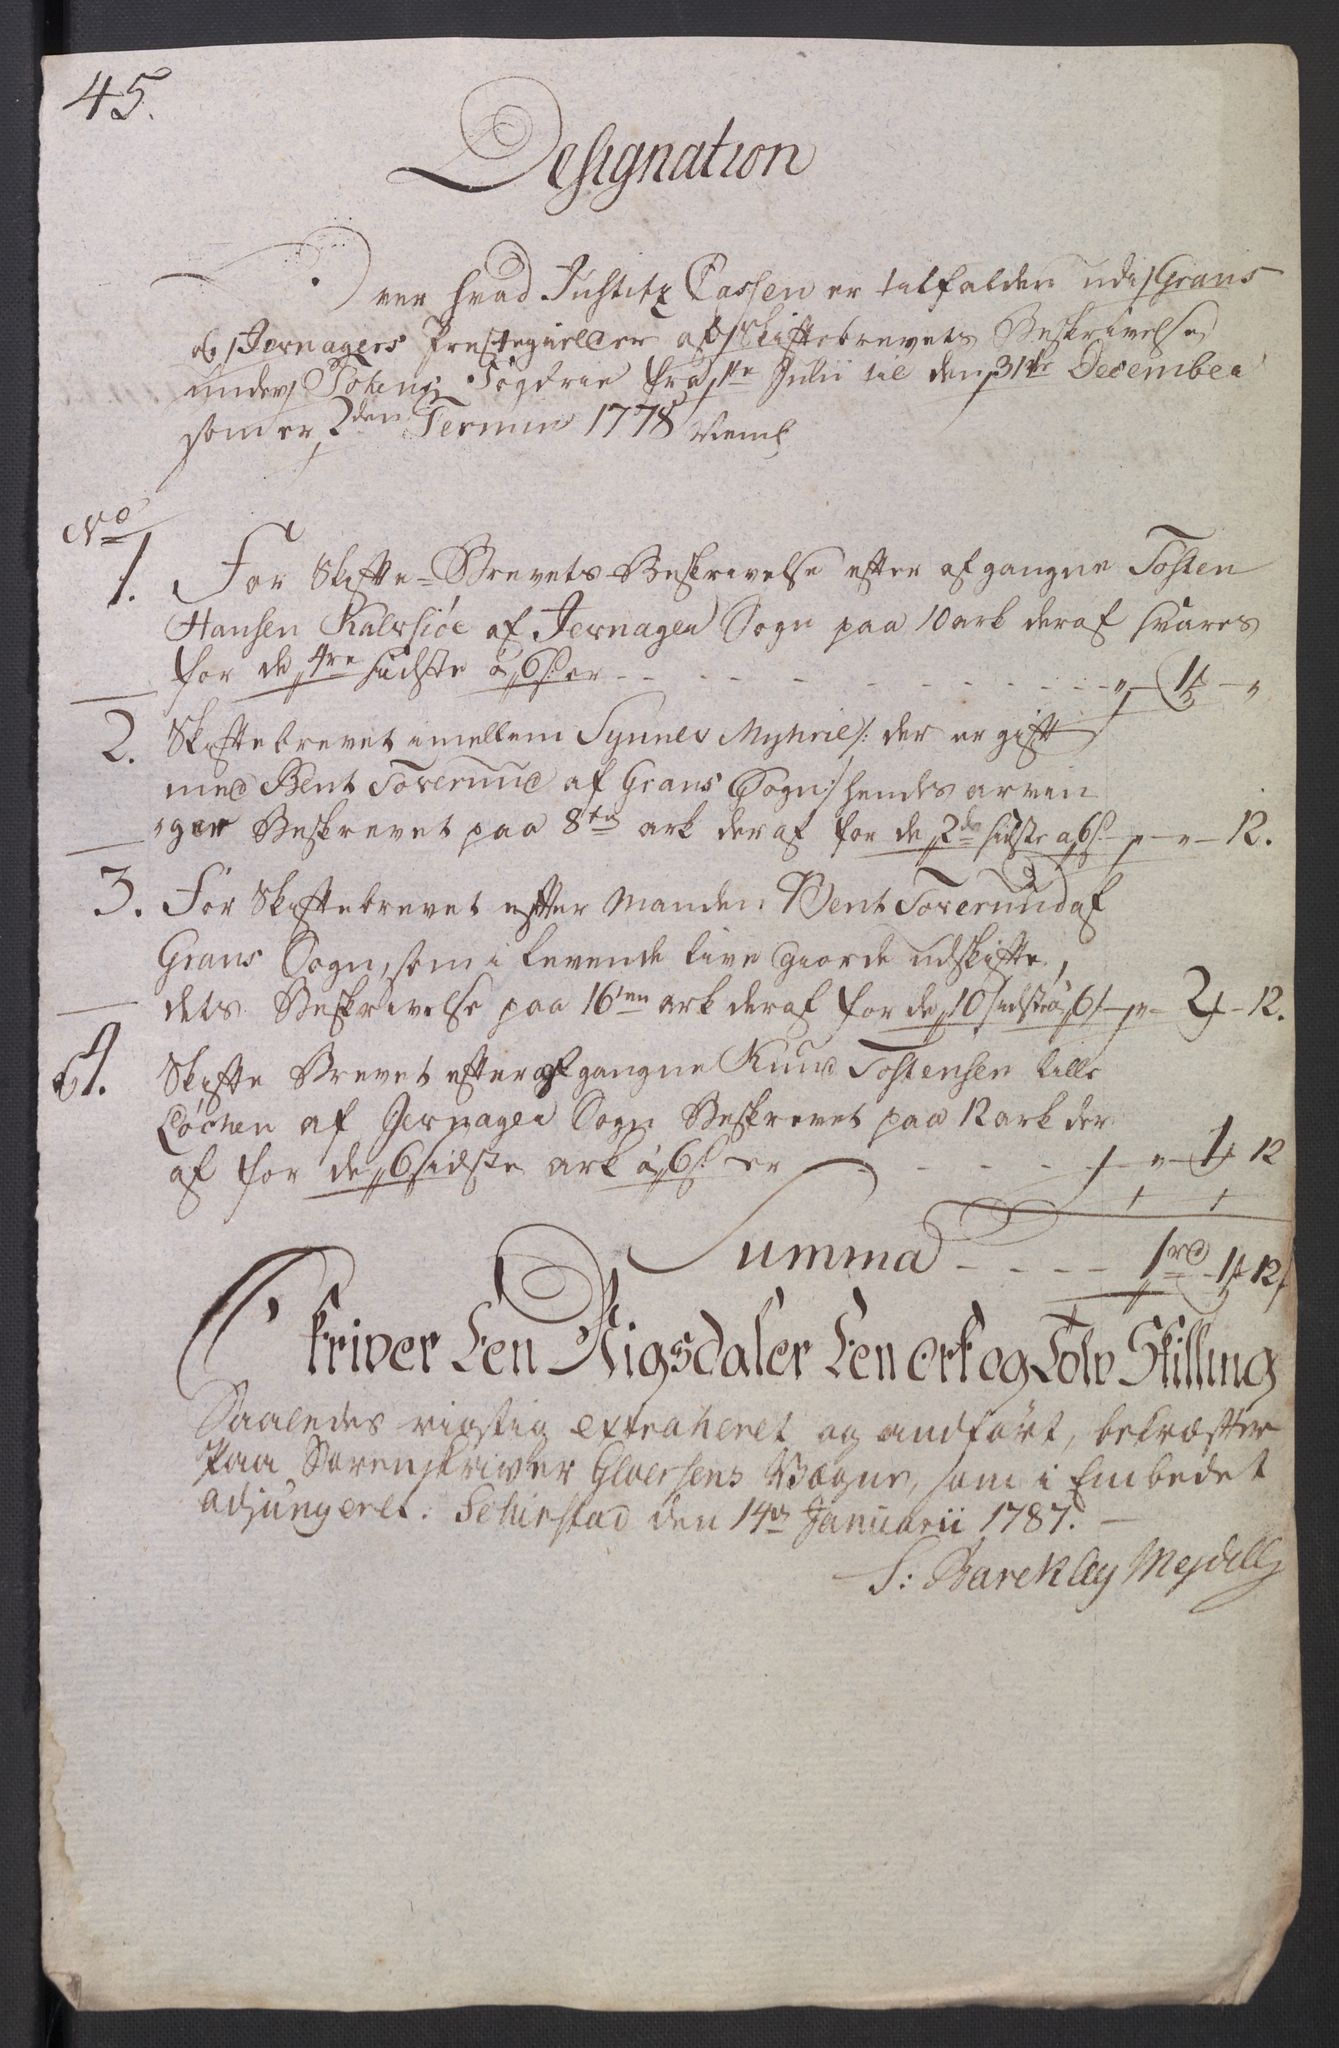 45.
Designation
Over hvad Justitz Cassen er tilfalden udi Grans
og Jevnagers Prestegielder af Skiftebrevets Beskrivelse
under Totens Fogdrie fra 1te Julii til den 31te December
som er 2den Termin 1778 Neml
No
1. For Skifte-Brevets Beskrivelse efter afgangne Tosten
Hansen Kalvsiöe af Jevnager Sogn paa 10 ark deraf svares
for de 4re sidste á 6 s. er - - - - " 1 "
2. Skiftebrevet imellem Synnev Myhrie /: der er gift
med Bent Toverund af Grans Sogn :/ hendes arvin
ger Beskrevet paa 8te ark deraf for de 2de sidste a 6 s. - " - " - 12.
3. For Skiftebrevet efter Manden Bent Toverund af
Grans Sogn, som i levende live giorde udskifte,
dets Beskrivelse paa 16ten ark deraf for de 10 sidste á 6 s - " - 2 - 12.
4. Skifte Brevet efter afgangne Knud Tostensen lille
Löchen af Jevnager Sogn Beskrevet paa 12 ark der
af for de 6 sidste ark á 6 s. er - - - - " - 1 12
Summa - - - - 1 rd 1 12 s
Skriver Een Rigsdaler Een ort og Tolv Skilling
Saaledes rigtig extraheret og andfört, bekræfter
Paa Sorenskriver Gloersens Vægne, som i Embedet
adjungeret. Sehiestad den 14de Januarii 1787. -
S: Barckley Mejdell